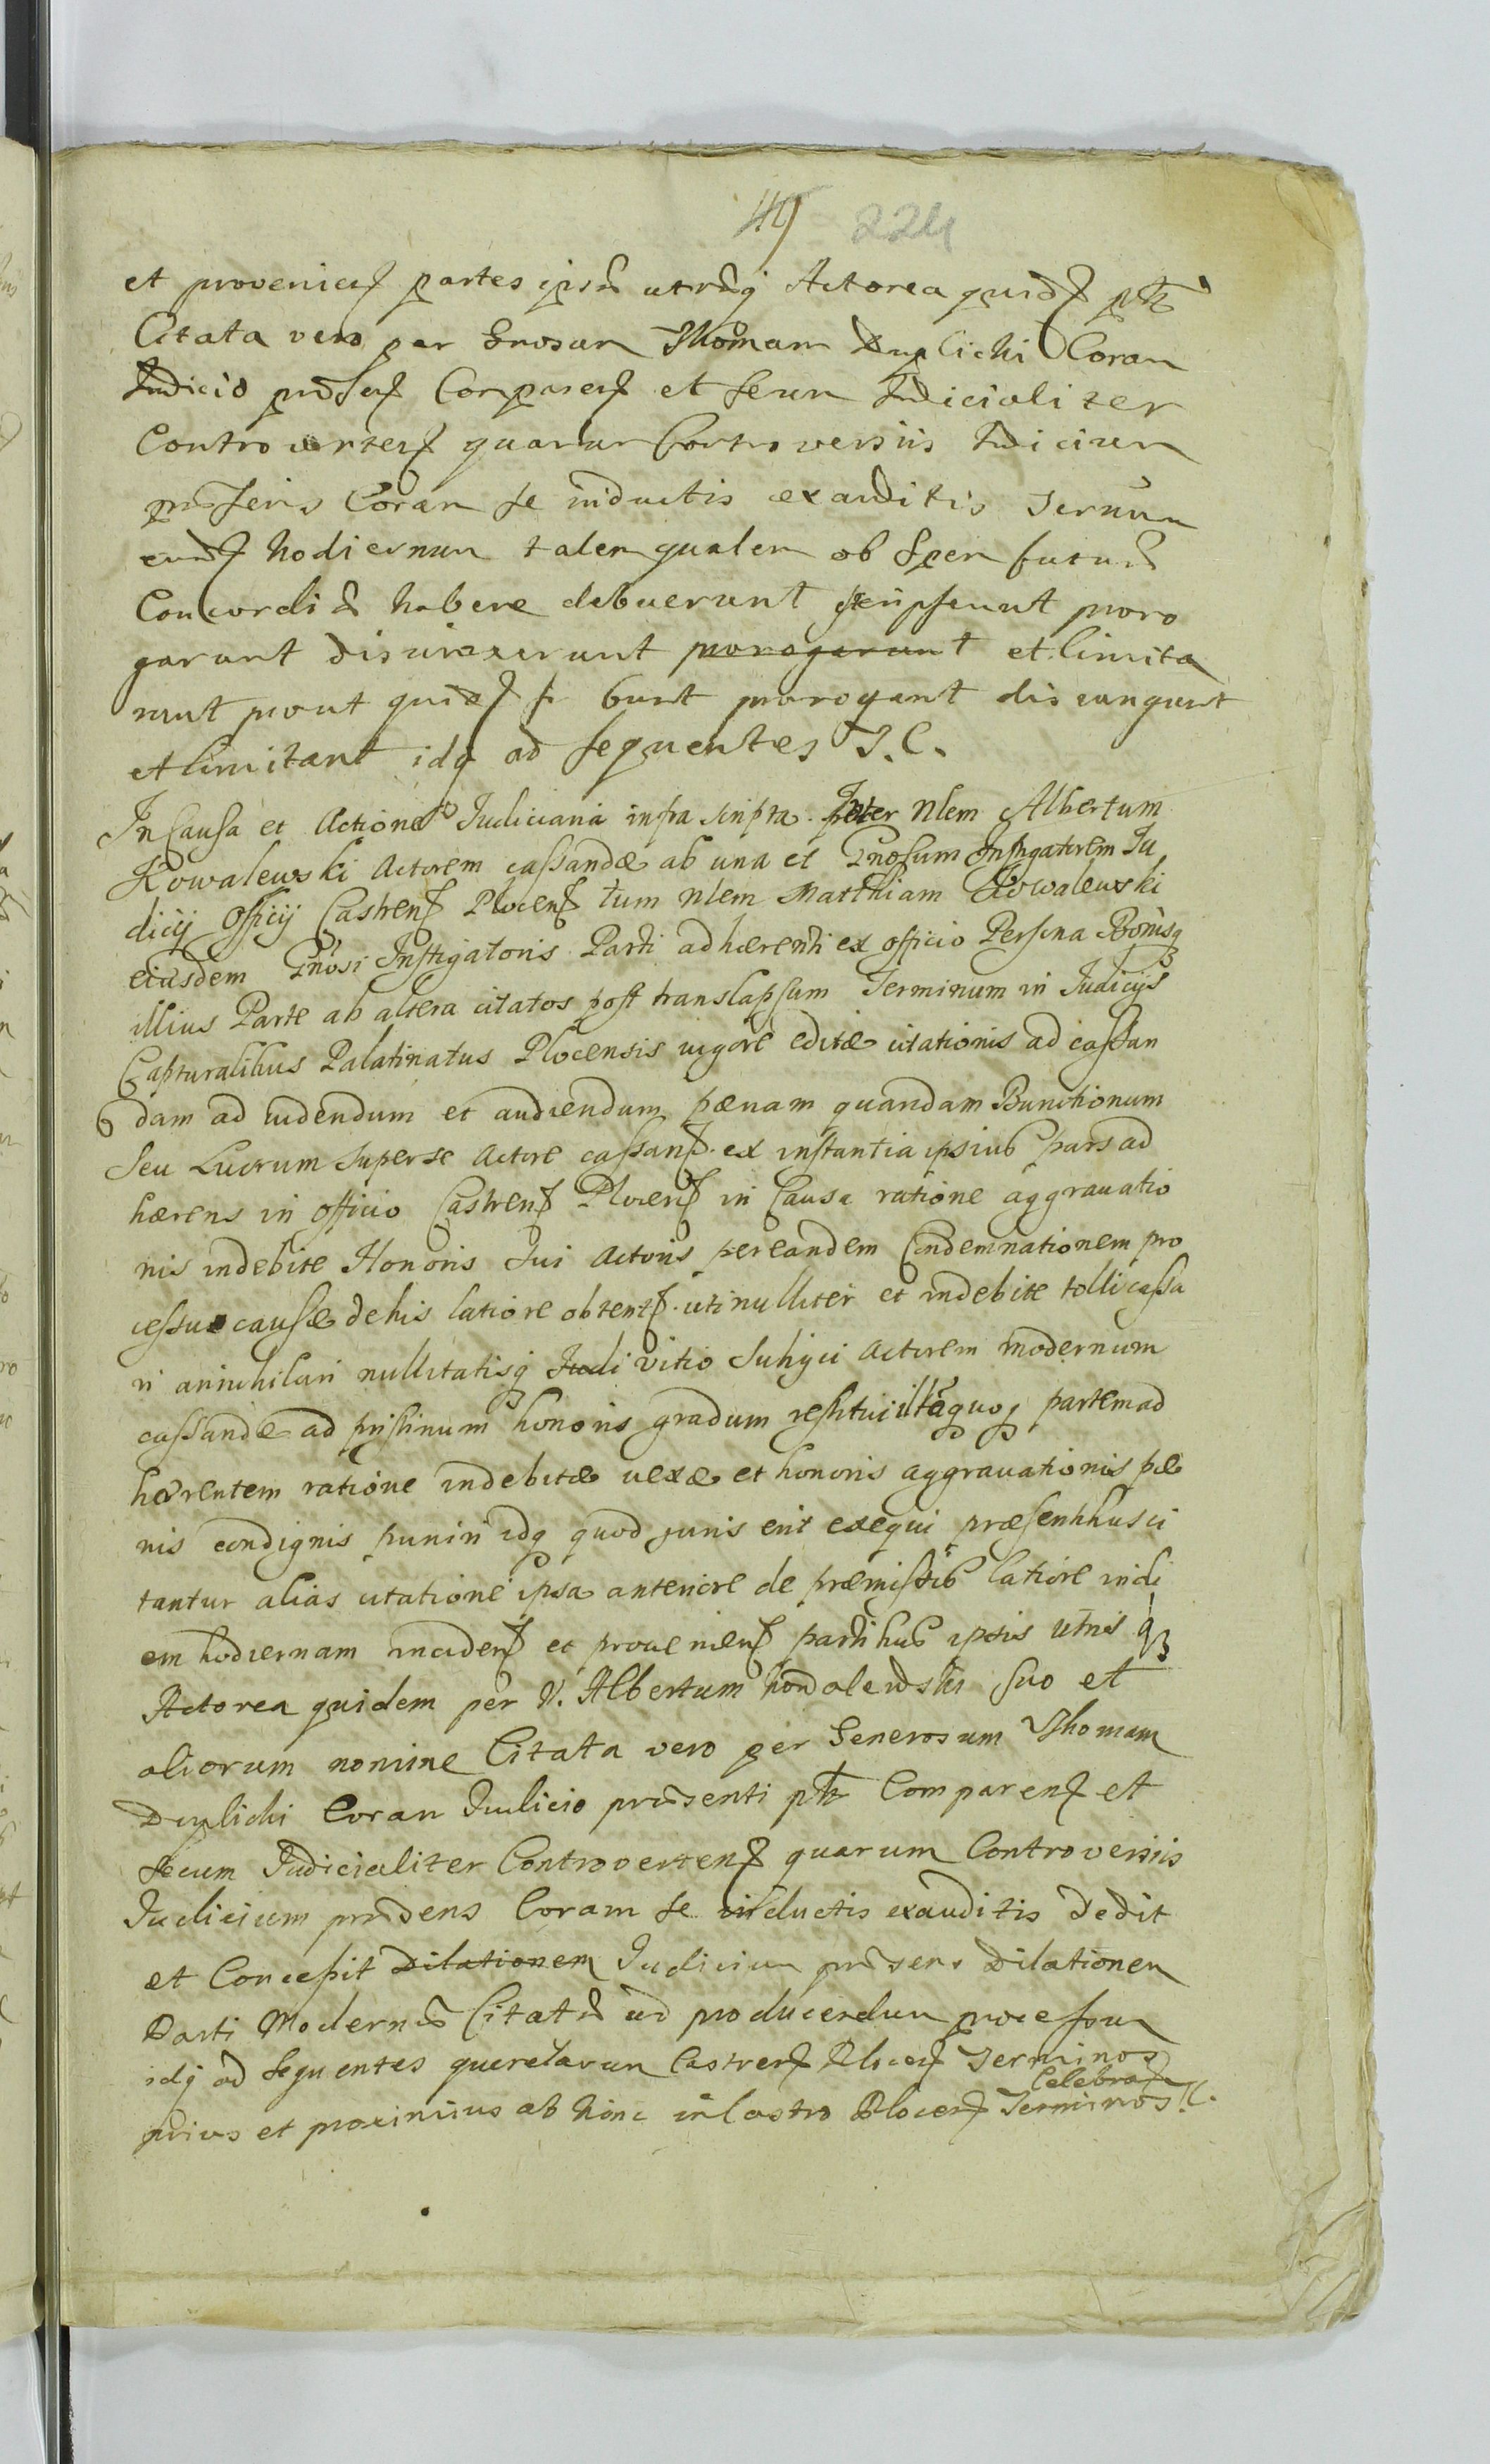 45 224
et provenien partes ipsas utrasq Actorea quidem ptr
Citata vero per Gnosum Thomam Duplichi Coram
Judicio pnsen Comparen et secum Judicialiter
Controverten quarum Controversiis Judicium
pnsens Coram se inductis exauditis Terminum
eundem hodiernum talem qualem ob spem futuræ
Concordiæ habere debuerunt scripserunt proro
garunt disiunxerunt prorogarunt et limita
runt prout quidem prorogant disiungunt
et limitant idq ad sequentes T. C.
In Causa et Actione Judiciaria infra scripta. Inter Nlem Albertum
Kowalewski Actorem cassandæ ab una et Gnosum Instigatorem Ju
dicij Officij Castren Plocen tum Nlem Matthiam Kowalewski
eiusdem Gnosi Instigatoris Parti adhærenti ex officio Persona Bonisq
illius Parte ab altera citatos post translapsum Terminum in Judicijs
Capturalibus Palatinatus Plocensis vigore editæ citationis ad cassan
dam ad videndum et audiendum pænam quandam Bannitionum
seu Lucrum super se Actore cassan. ex instantia ipsius pars ad
hærens in officio Castren Plocen in Causa ratione aggravatio
nis indebite Honoris sui Actoris per eandem Condemnationem pro
cessu causæ de his latiore obtent. uti nulliter et indebite tolli cassa
ri annihilari nullitatisq Judi vitio subijci Actorem modernum
cassandæ ad pristinum honoris gradum restitui partem ad
hærentem ratione indebitæ vexæ et honoris aggravationis pæ
nis condignis puniri idq quod juris erit exequi præsentibus ci
tantur alias citatione ipsa anteriore de præmissis latiore in di
em hodiernam inciden et provenien partibus ipsis utrisq
Actorea quidem per N. Albertum Kowalewski suo et
aliorum nomine Citata vero per Generosum Thomam
Duplichi Coram Judicio præsenti ptr Comparen et
secum Judicialiter Controverten quarum Controversiis
Judicium præsens Coram se inductis exauditis Dedit
et Concessit Dilationem Judicium præsens Dilationem
Parti Modernæ Citatæ ad producendum processum
idq ad sequentes querelarum Castren Plocen Terminos
Celebran
prius et proximius ab hinc in Castro Plocen Terminos T. C.